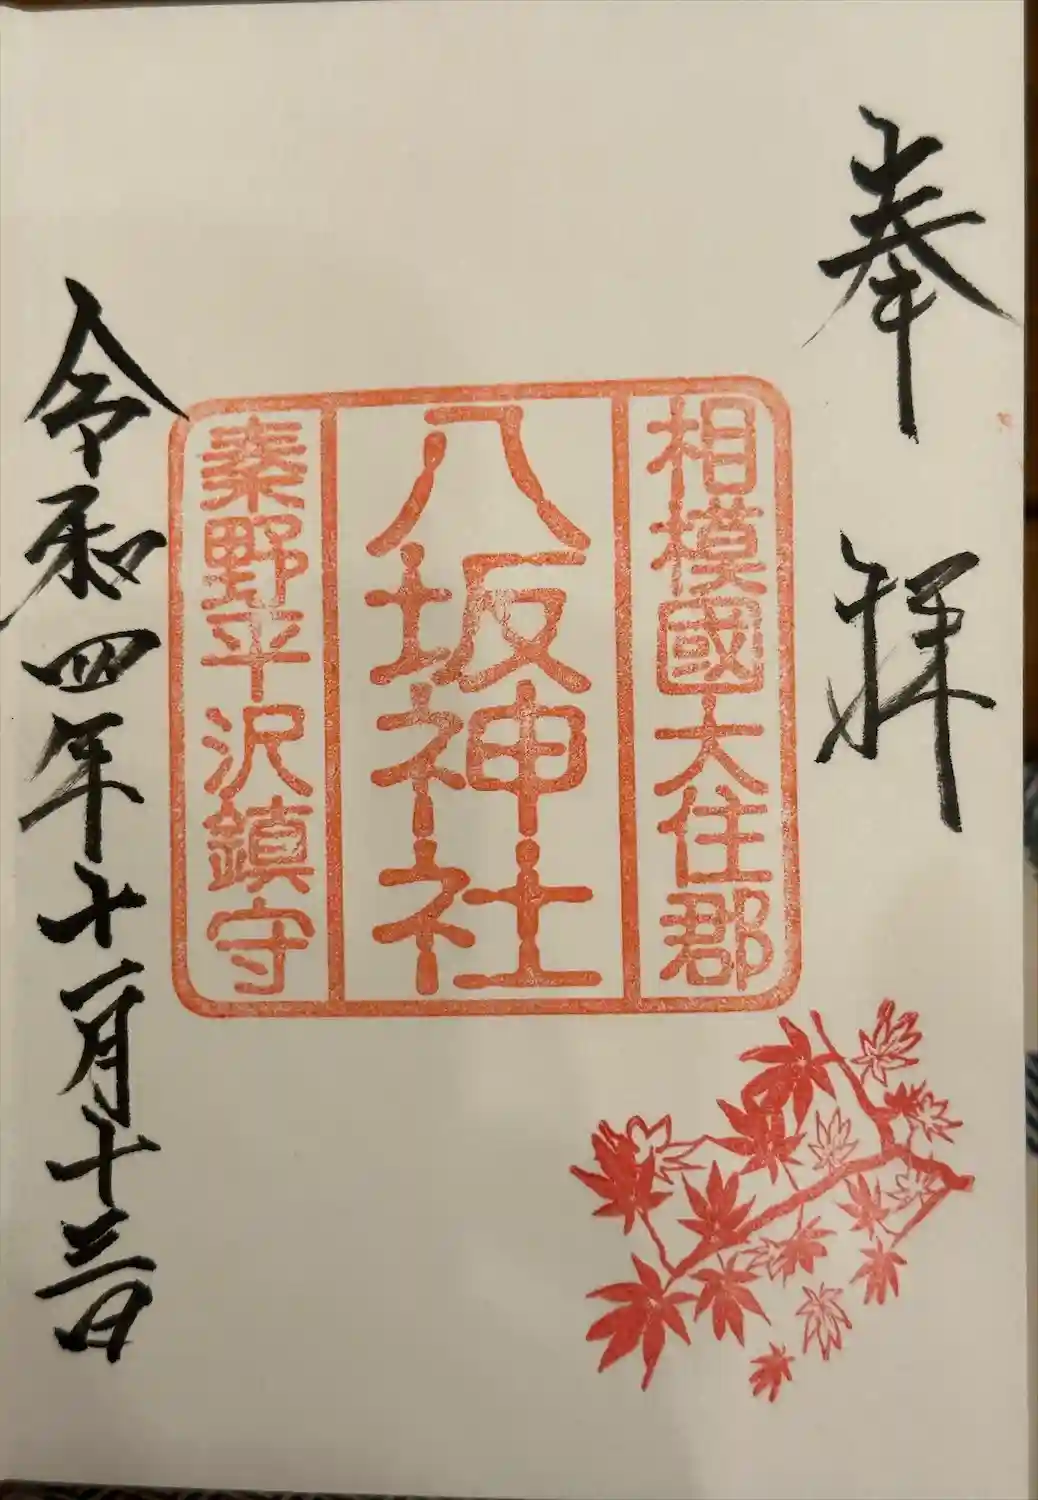 奉拝
相模國大住郡
八坂神社
秦野平沢鎮守
令和四年十一月十三日